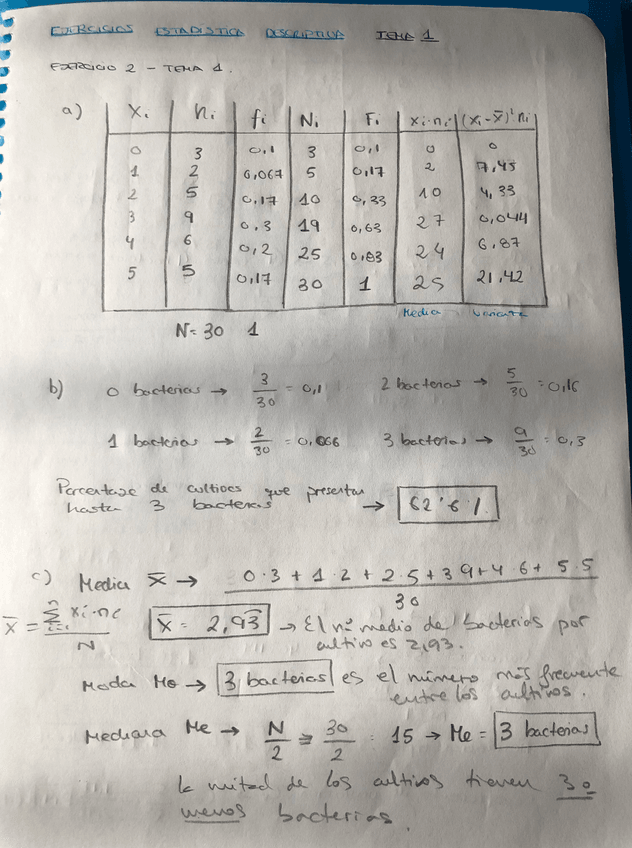 EJERCICIOS ESTADÍSTICA DESCRIPTIVA TEMA 1
EJERCICIO 2 - TEMA 1.
a) Xi ni fi Ni Fi xi·ni (xi-x̄)² ni
0 3 0,1 3 0,1 0 0
1 2 0,067 5 0,17 2 7,45
2 5 0,17 10 0,33 10 4,33
3 9 0,3 19 0,63 27 0,044
4 6 0,2 25 0,83 24 6,87
5 5 0,17 30 1 25 21,42
Media Varianza
N= 30 1
b) 0 bacterias → 3/30 = 0,1 2 bacterias → 5/30 = 0,16
1 bacterias → 2/30 = 0,066 3 bacterias → 9/30 = 0,3
Porcentaje de cultivos que presentan
hasta 3 bacterias → 62'6 %
c) Media x̄ → 0·3 + 1·2 + 2·5 + 3 9 + 4·6 + 5·5 / 30
x̄ = Σ xi·ni / N x̄ = 2,93 → El nº medio de bacterias por
cultivo es 2,93.
Moda Mo → 3 bacterias es el número más frecuente
entre los cultivos.
Mediana Me → N/2 ⇒ 30/2 = 15 → Me = 3 bacterias
la mitad de los cultivos tienen 3 o
menos bacterias.